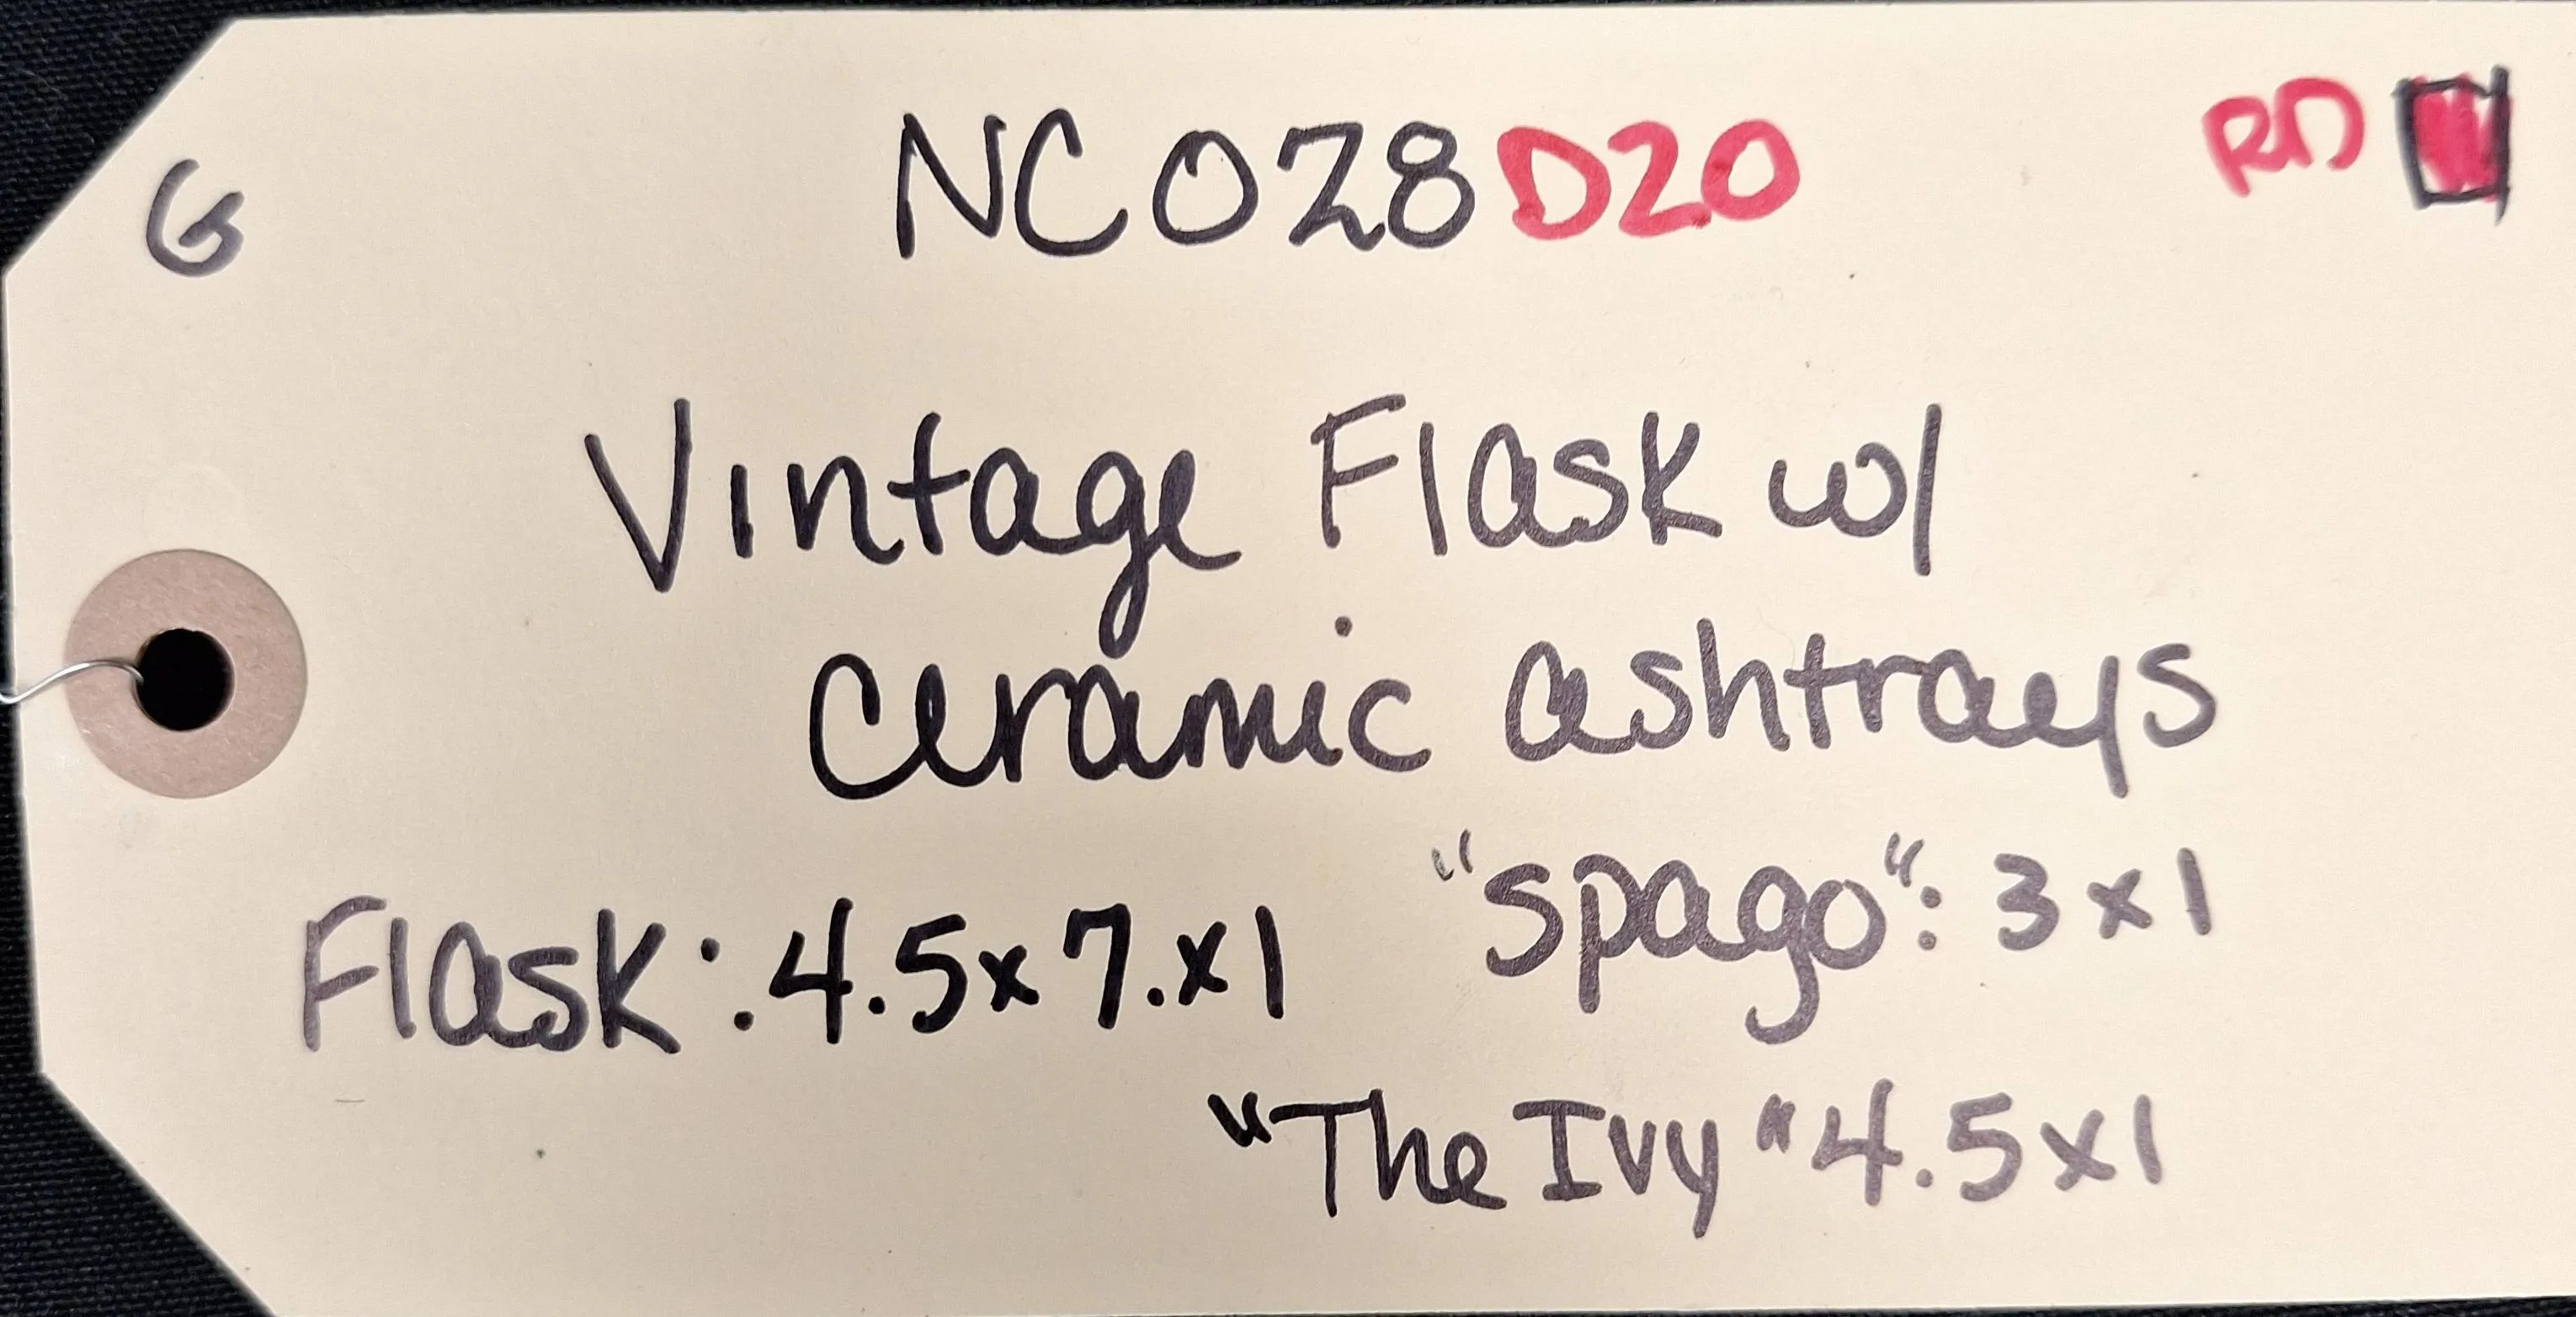 G NC028D20 RD
Vintage Flask w/
ceramic ashtrays
"Spago": 3x1
Flask: 4.5x7.x1
"The Ivy" 4.5x1